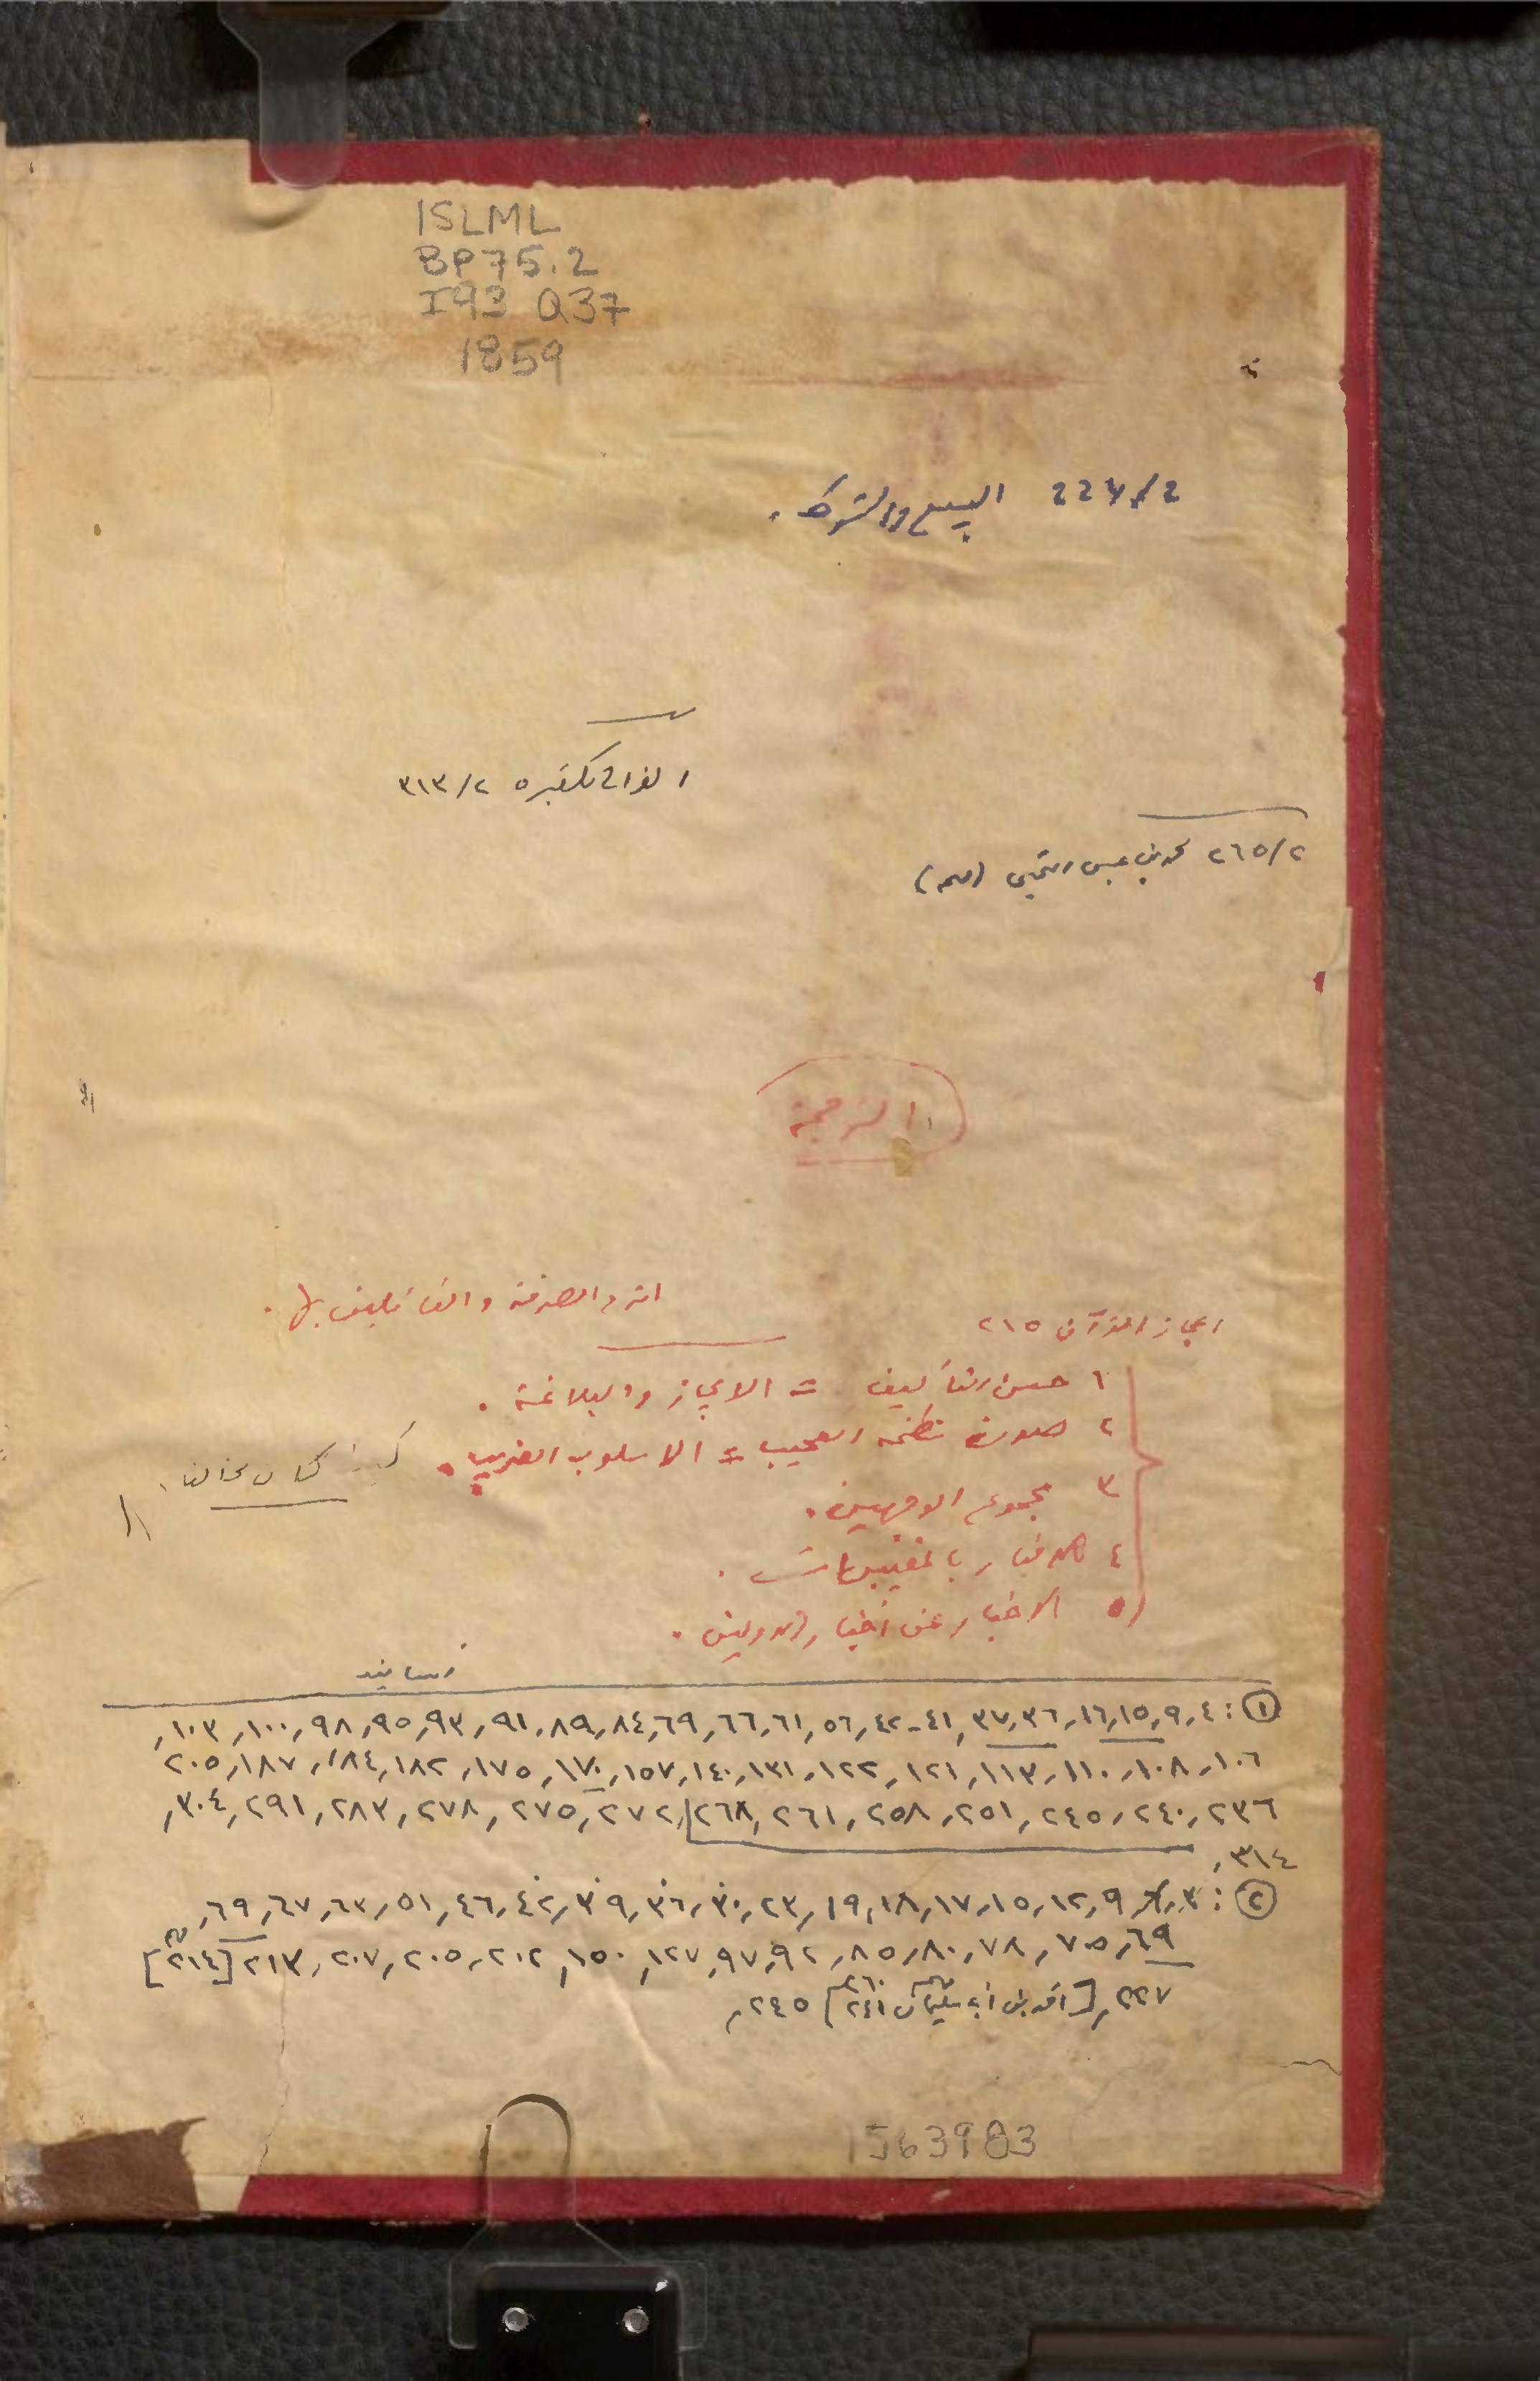 ISLML
BP75.2
I93 Q37
1859
227/2 البيع والشرط .
٣١٣/٢
٢٦٥/٢ محمد بن عيسى التجيبي
الترجمة
الصرفة والقائلين بها .
اعجاز القرآن ٢١٥
١ حسن التأليف = الايجاز والبلاغة .
٢ صورة نظمه العجيب = الاسلوب الغريب .
٣ مجموع الوجهين .
٤ الاخبار بالمغيبات .
٥ الاخبار عن أخبار الاولين .
أسانيد
①: ٤, ٩, ١٥, ١٦, ٣٦, ٣٧, ٤١-٤٢, ٥٦, ٦١, ٦٦, ٦٩, ٨٤, ٨٩, ٩١, ٩٣, ٩٥, ٩٨, ١٠٠, ١٠٣,
١٠٦, ١٠٨, ١١٠, ١١٣, ١٢١, ١٢٢, ١٣١, ١٤٠, ١٥٧, ١٧٠, ١٧٥, ١٨٢, ١٨٤, ١٨٧, ٢٠٥
٢٣٦, ٢٤٠, ٢٤٥, ٢٥١, ٢٥٨, ٢٦١, ٢٦٨, ٢٧٢, ٢٧٥, ٢٧٨, ٢٨٣, ٢٩١, ٣٠٤,
٣١٤,
②: ٣, ٩, ١٢, ١٥, ١٧, ١٨, ١٩, ٢٣, ٣٠, ٣٦, ٣٩, ٤٢, ٤٦, ٥١, ٦٣, ٦٧, ٦٩,
٦٩, ٧٥, ٧٨, ٨٠, ٨٥, ٩٢, ٩٧, ١٢٧, ١٥٠, ٢٠٢, ٢٠٥, ٢٠٧, ٢١٣ [٢١٤]
٢٢٧, [أحمد بن أبي سليمان ٢٤١] ٢٤٥,
1563983